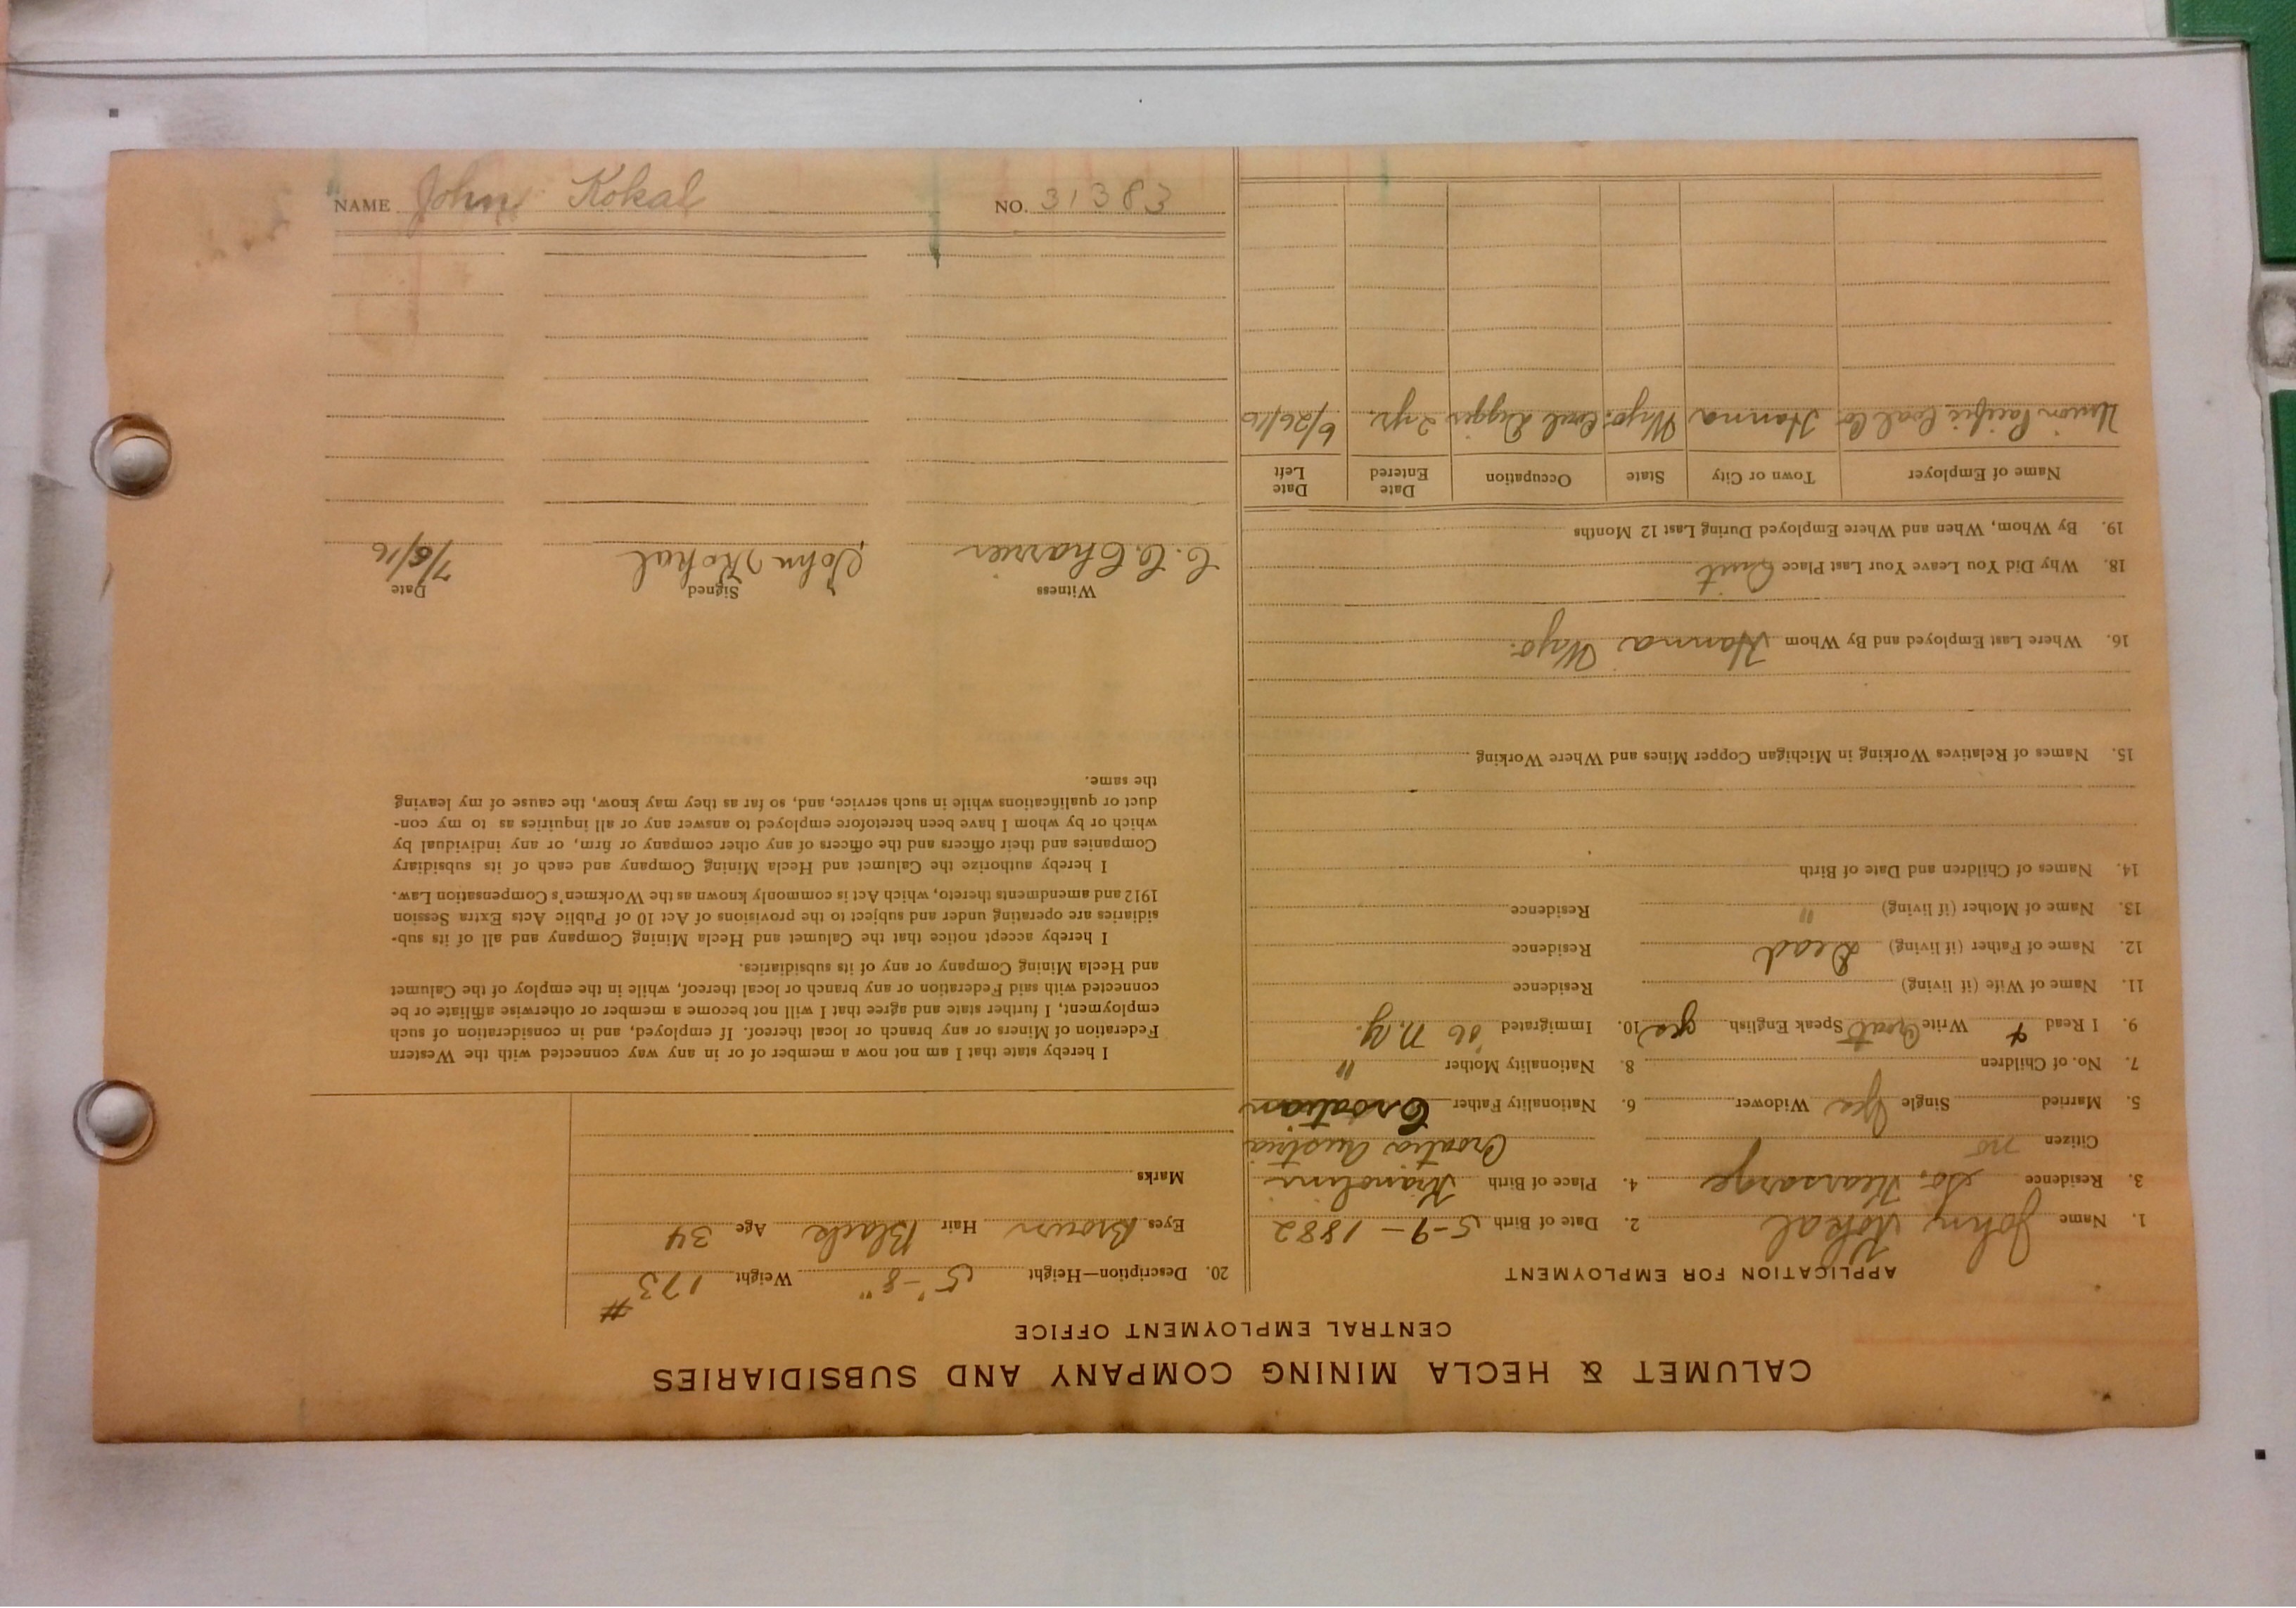 CALUMET & HECLA MINING COMPANY AND SUBSIDIARIES
CENTRAL EMPLOYMENT OFFICE
APPLICATION FOR EMPLOYMENT
1. Name John Kokal 2. Date of Birth 5-9-1882
3. Residence So. Kearsarge 4. Place of Birth
Citizen no Croatia Austria
5. Married Single Yes Widower 6. Nationality Father Croatian
7. No. of Children 8. Nationality Mother "
9. I Read & Write Croat Speak English yes 10. Immigrated '06 N.Y.
11. Name of Wife (if living) Residence
12. Name of Father (if living) Dead Residence
13. Name of Mother (if living) " Residence
14. Names of Children and Date of Birth
15. Names of Relatives Working in Michigan Copper Mines and Where Working
16. Where Last Employed and By Whom Hanna Wyo.
18. Why Did You Leave Your Last Place Quit
19. By Whom, When and Where Employed During Last 12 Months
Name of Employer Town or City State Occupation Date Entered Date Left
Union Pacific Coal Co Hanna Wyo. Coal Digger 2 yrs. 6/26/16
20. Description—Height 5'-8" Weight 173#
Eyes Brown Hair Black Age 34
Marks
I hereby state that I am not now a member of or in any way connected with the Western
Federation of Miners or any branch or local thereof. If employed, and in consideration of such
employment, I further state and agree that I will not become a member or otherwise affiliate or be
connected with said Federation or any branch or local thereof, while in the employ of the Calumet
and Hecla Mining Company or any of its subsidiaries.
I hereby accept notice that the Calumet and Hecla Mining Company and all of its sub-
sidiaries are operating under and subject to the provisions of Act 10 of Public Acts Extra Session
1912 and amendments thereto, which Act is commonly known as the Workmen's Compensation Law.
I hereby authorize the Calumet and Hecla Mining Company and each of its subsidiary
Companies and their officers and the officers of any other company or firm, or any individual by
which or by whom I have been heretofore employed to answer any or all inquiries as to my con-
duct or qualifications while in such service, and, so far as they may know, the cause of my leaving
the same.
Witness Signed Date
C. C. Charrier John Kokal 7/5/16
NAME John Kokal NO. 31383